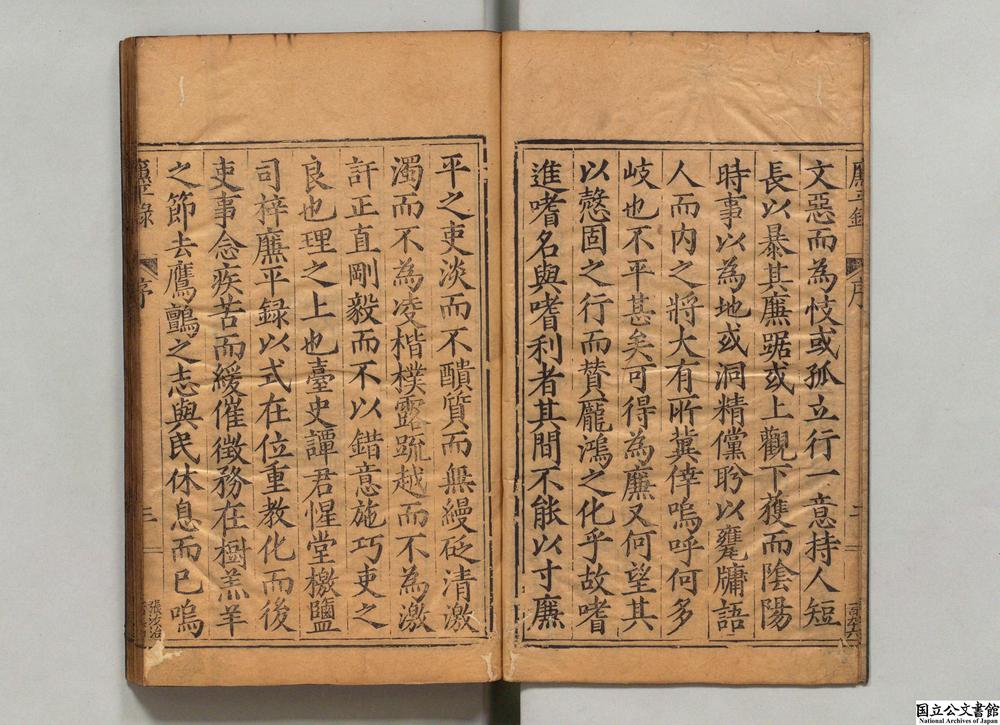 文惡而為忮或孤立行一意持人短
長以暴其廉踞或上觀下獲而陰陽
時事以為地或洞精儻聆以甕牖語
人而内之將大有所冀倖嗚呼何多
岐也不平甚矣可得為廉又何望其
以慤固之行而贊龎鴻之化乎故嗜
進嗜名與嗜利者其間不能以寸廉
平之吏淡而不醩質而無縵砭清激
濁而不為凌楷樸露䟽越而不為激
訐正直剛毅而不以錯意施巧吏之
良也理之上也臺史譚君惺堂檄鹽
司梓廉平録以式在位重教化而後
吏事念疾苦而緩催徵務在樹羔羊
之節去鷹鸇之志與民休息而已嗚
廉平錄
序
二
廉平錄
序
三
国立公文書館
National Archives of Japan